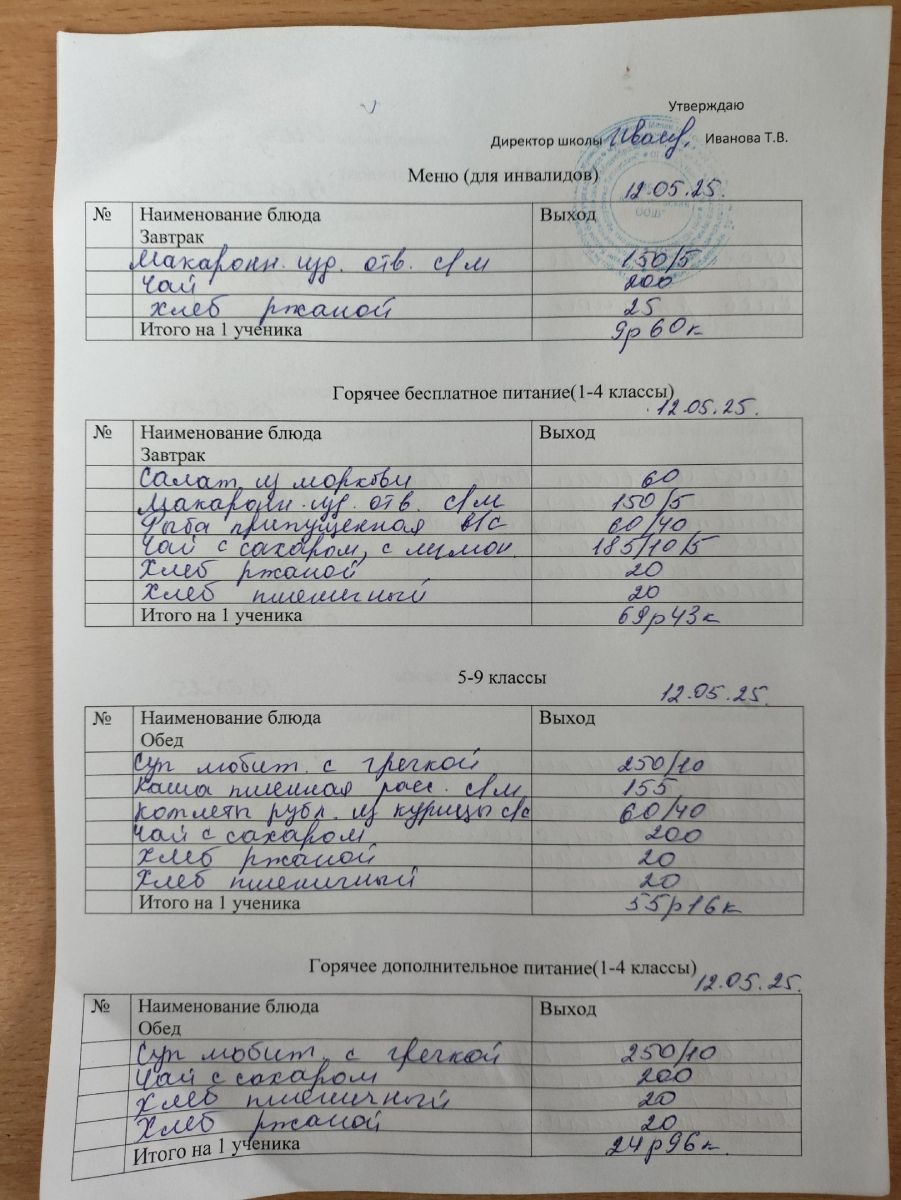 Утверждаю
Директор школы Иванова Т.В.
Меню (для инвалидов)
12.05.25.
№ Наименование блюда Выход
Завтрак
Макаронн. изд. отв. с/м 150/5
Чай 200
Хлеб ржаной 25
Итого на 1 ученика 9р 60к
Горячее бесплатное питание(1-4 классы)
12.05.25.
№ Наименование блюда Выход
Завтрак
Салат из моркови 60
Макаронн. изд. отв. с/м 150/5
Рыба припущенная в/с 60/40
Чай с сахаром, с лимон. 185/10/5
Хлеб ржаной 20
Хлеб пшеничный 20
Итого на 1 ученика 69р43к
5-9 классы
12.05.25.
№ Наименование блюда Выход
Обед
Суп любит. с гречкой 250/10
Каша пшенная расс. с/м 155
Котлеты рубл. из курицы с/с 60/40
Чай с сахаром 200
Хлеб ржаной 20
Хлеб пшеничный 20
Итого на 1 ученика 55р16к
Горячее дополнительное питание(1-4 классы)
12.05.25.
№ Наименование блюда Выход
Обед
Суп любит. с гречкой 250/10
Чай с сахаром 200
Хлеб пшеничный 20
Хлеб ржаной 20
Итого на 1 ученика 24р96к.